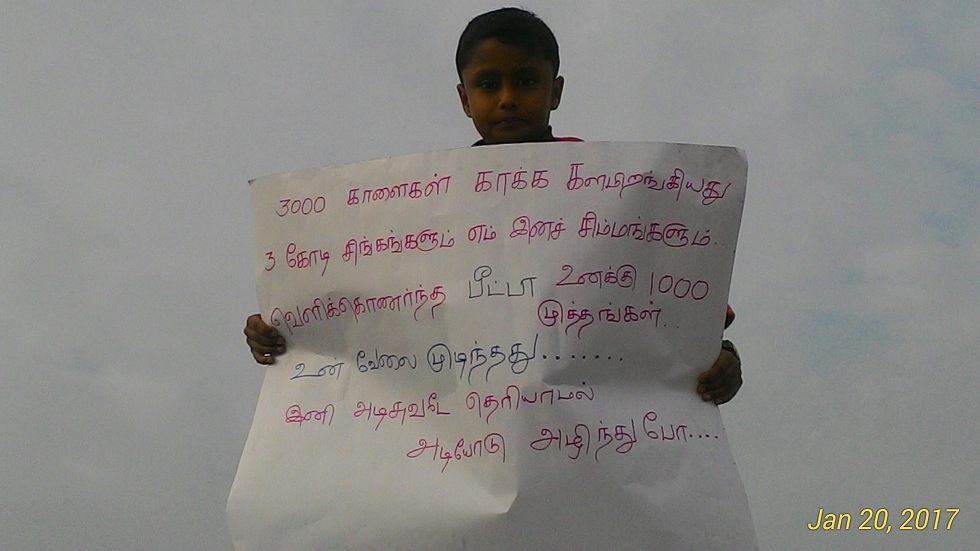 3000 காளைகள் காக்க களமிறங்கியது
3 கோடி சிங்கங்களும் எம் இனச் சிம்மங்களும்..
வெளிக்கொணர்ந்த பீட்டா உனக்கு 1000
முத்தங்கள்..
உன் வேலை முடிந்தது.......
இனி அடிசுவடே தெரியாமல்
அடியோடு அழிந்து போ....
Jan 20, 2017